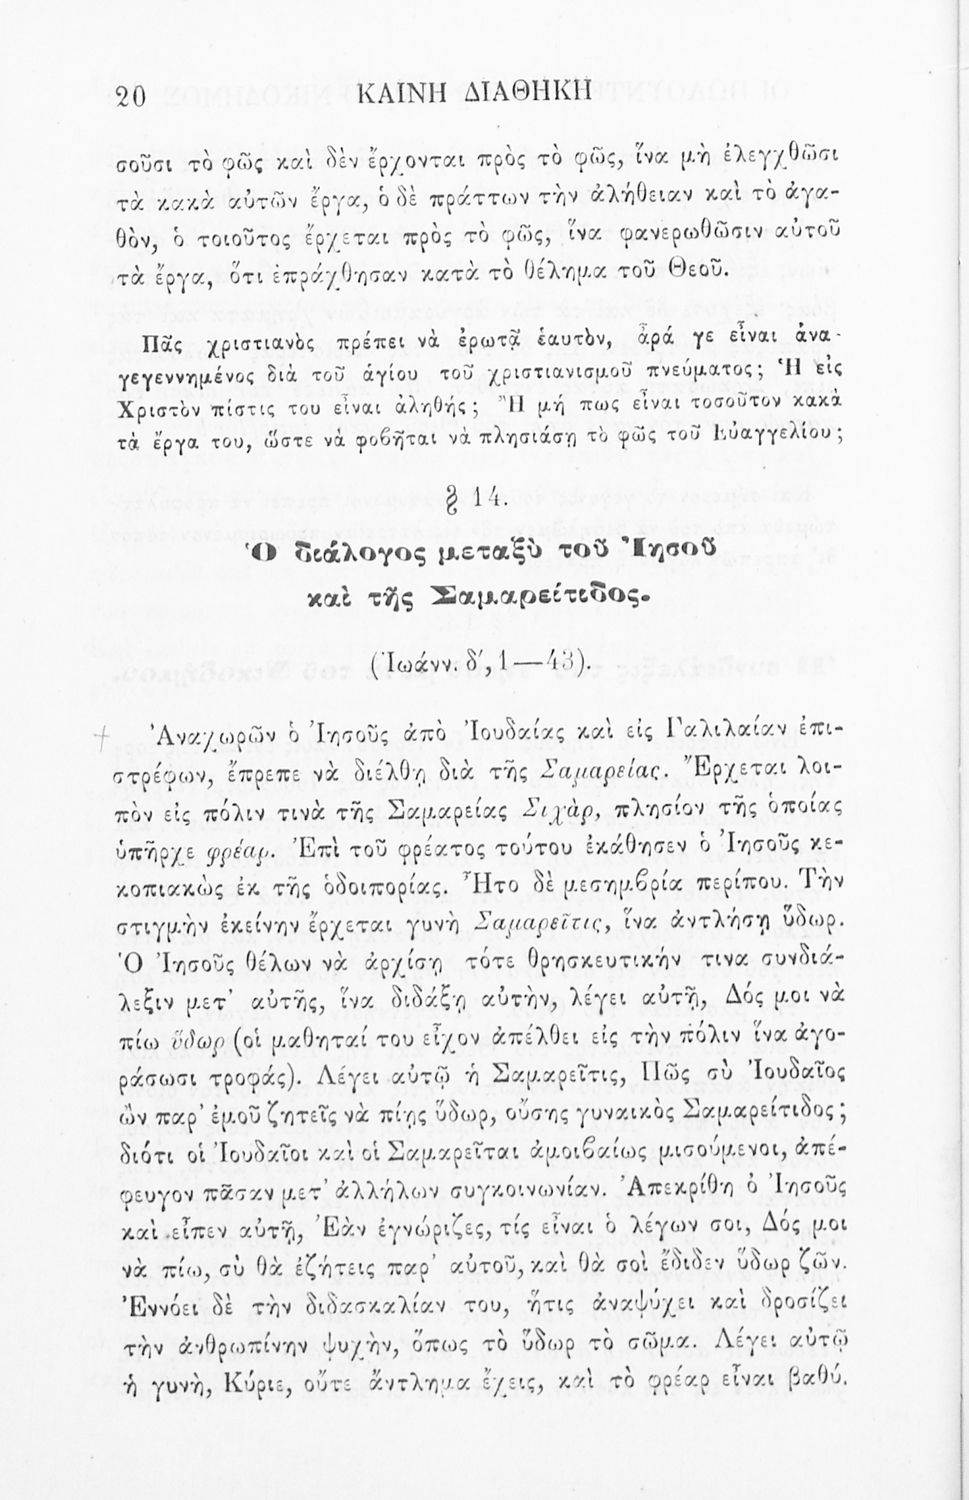 20 ΚΑΙΝΗ ΔΙΑΘΗΚΗ
σοῦσι τὸ φῶς καὶ δὲν ἔρχονται πρὸς τὸ φῶς, ἵνα μὴ ἐλεγχθῶσι
τὰ κακὰ αὐτῶν ἔργα, ὁ δὲ πράττων τὴν ἀλήθειαν καὶ τὸ ἀγα-
θὸν, ὁ τοιοῦτος ἔρχεται πρὸς τὸ φῶς, ἵνα φανερωθῶσιν αὐτοῦ
τὰ ἔργα, ὅτι ἐπράχθησαν κατὰ τὸ θέλημα τοῦ Θεοῦ.
Πᾶς χριστιανὸς πρέπει νὰ ἐρωτᾷ ἑαυτὸν, ἆρά γε εἶναι ἀνα-
γεγεννημένος διὰ τοῦ ἁγίου τοῦ χριστιανισμοῦ πνεύματος; Ἡ εἰς
Χριστὸν πίστις του εἶναι ἀληθής; Ἢ μή πως εἶναι τοσοῦτον κακὰ
τὰ ἔργα του, ὥστε νὰ φοβῆται νὰ πλησιάσῃ τὸ φῶς τοῦ Εὐαγγελίου;
§ 14.
Ὁ διάλογος μεταξὺ τοῦ Ἰησοῦ
καὶ τῆς Σαμαρείτιδος.
(Ἰωάνν. δ′, 1—43).
Ἀναχωρῶν ὁ Ἰησοῦς ἀπὸ Ἰουδαίας καὶ εἰς Γαλιλαίαν ἐπι-
στρέφων, ἔπρεπε νὰ διέλθῃ διὰ τῆς Σαμαρείας. Ἔρχεται λοι-
πὸν εἰς πόλιν τινὰ τῆς Σαμαρείας Σιχὰρ, πλησίον τῆς ὁποίας
ὑπῆρχε φρέαρ. Ἐπὶ τοῦ φρέατος τούτου ἐκάθησεν ὁ Ἰησοῦς κε-
κοπιακὼς ἐκ τῆς ὁδοιπορίας. Ἦτο δὲ μεσημβρία περίπου. Τὴν
στιγμὴν ἐκείνην ἔρχεται γυνὴ Σαμαρεῖτις, ἵνα ἀντλήσῃ ὕδωρ.
Ὁ Ἰησοῦς θέλων νὰ ἀρχίσῃ τότε θρησκευτικήν τινα συνδιά-
λεξιν μετ' αὐτῆς, ἵνα διδάξῃ αὐτὴν, λέγει αὐτῇ, Δός μοι νὰ
πίω ὕδωρ (οἱ μαθηταί του εἶχον ἀπέλθει εἰς τὴν πόλιν ἵνα ἀγο-
ράσωσι τροφάς). Λέγει αὐτῷ ἡ Σαμαρεῖτις, Πῶς σὺ Ἰουδαῖος
ὢν παρ' ἐμοῦ ζητεῖς νὰ πίῃς ὕδωρ, οὔσης γυναικὸς Σαμαρείτιδος;
διότι οἱ Ἰουδαῖοι καὶ οἱ Σαμαρεῖται ἀμοιβαίως μισούμενοι, ἀπέ-
φευγον πᾶσαν μετ' ἀλλήλων συγκοινωνίαν. Ἀπεκρίθη ὁ Ἰησοῦς
καὶ εἶπεν αὐτῇ, Ἐὰν ἐγνώριζες, τίς εἶναι ὁ λέγων σοι, Δός μοι
νὰ πίω, σὺ θὰ ἐζήτεις παρ' αὐτοῦ, καὶ θὰ σοὶ ἔδιδεν ὕδωρ ζῶν.
Ἐννόει δὲ τὴν διδασκαλίαν του, ἥτις ἀναψύχει καὶ δροσίζει
τὴν ἀνθρωπίνην ψυχὴν, ὅπως τὸ ὕδωρ τὸ σῶμα. Λέγει αὐτῷ
ἡ γυνὴ, Κύριε, οὔτε ἄντλημα ἔχεις, καὶ τὸ φρέαρ εἶναι βαθύ.